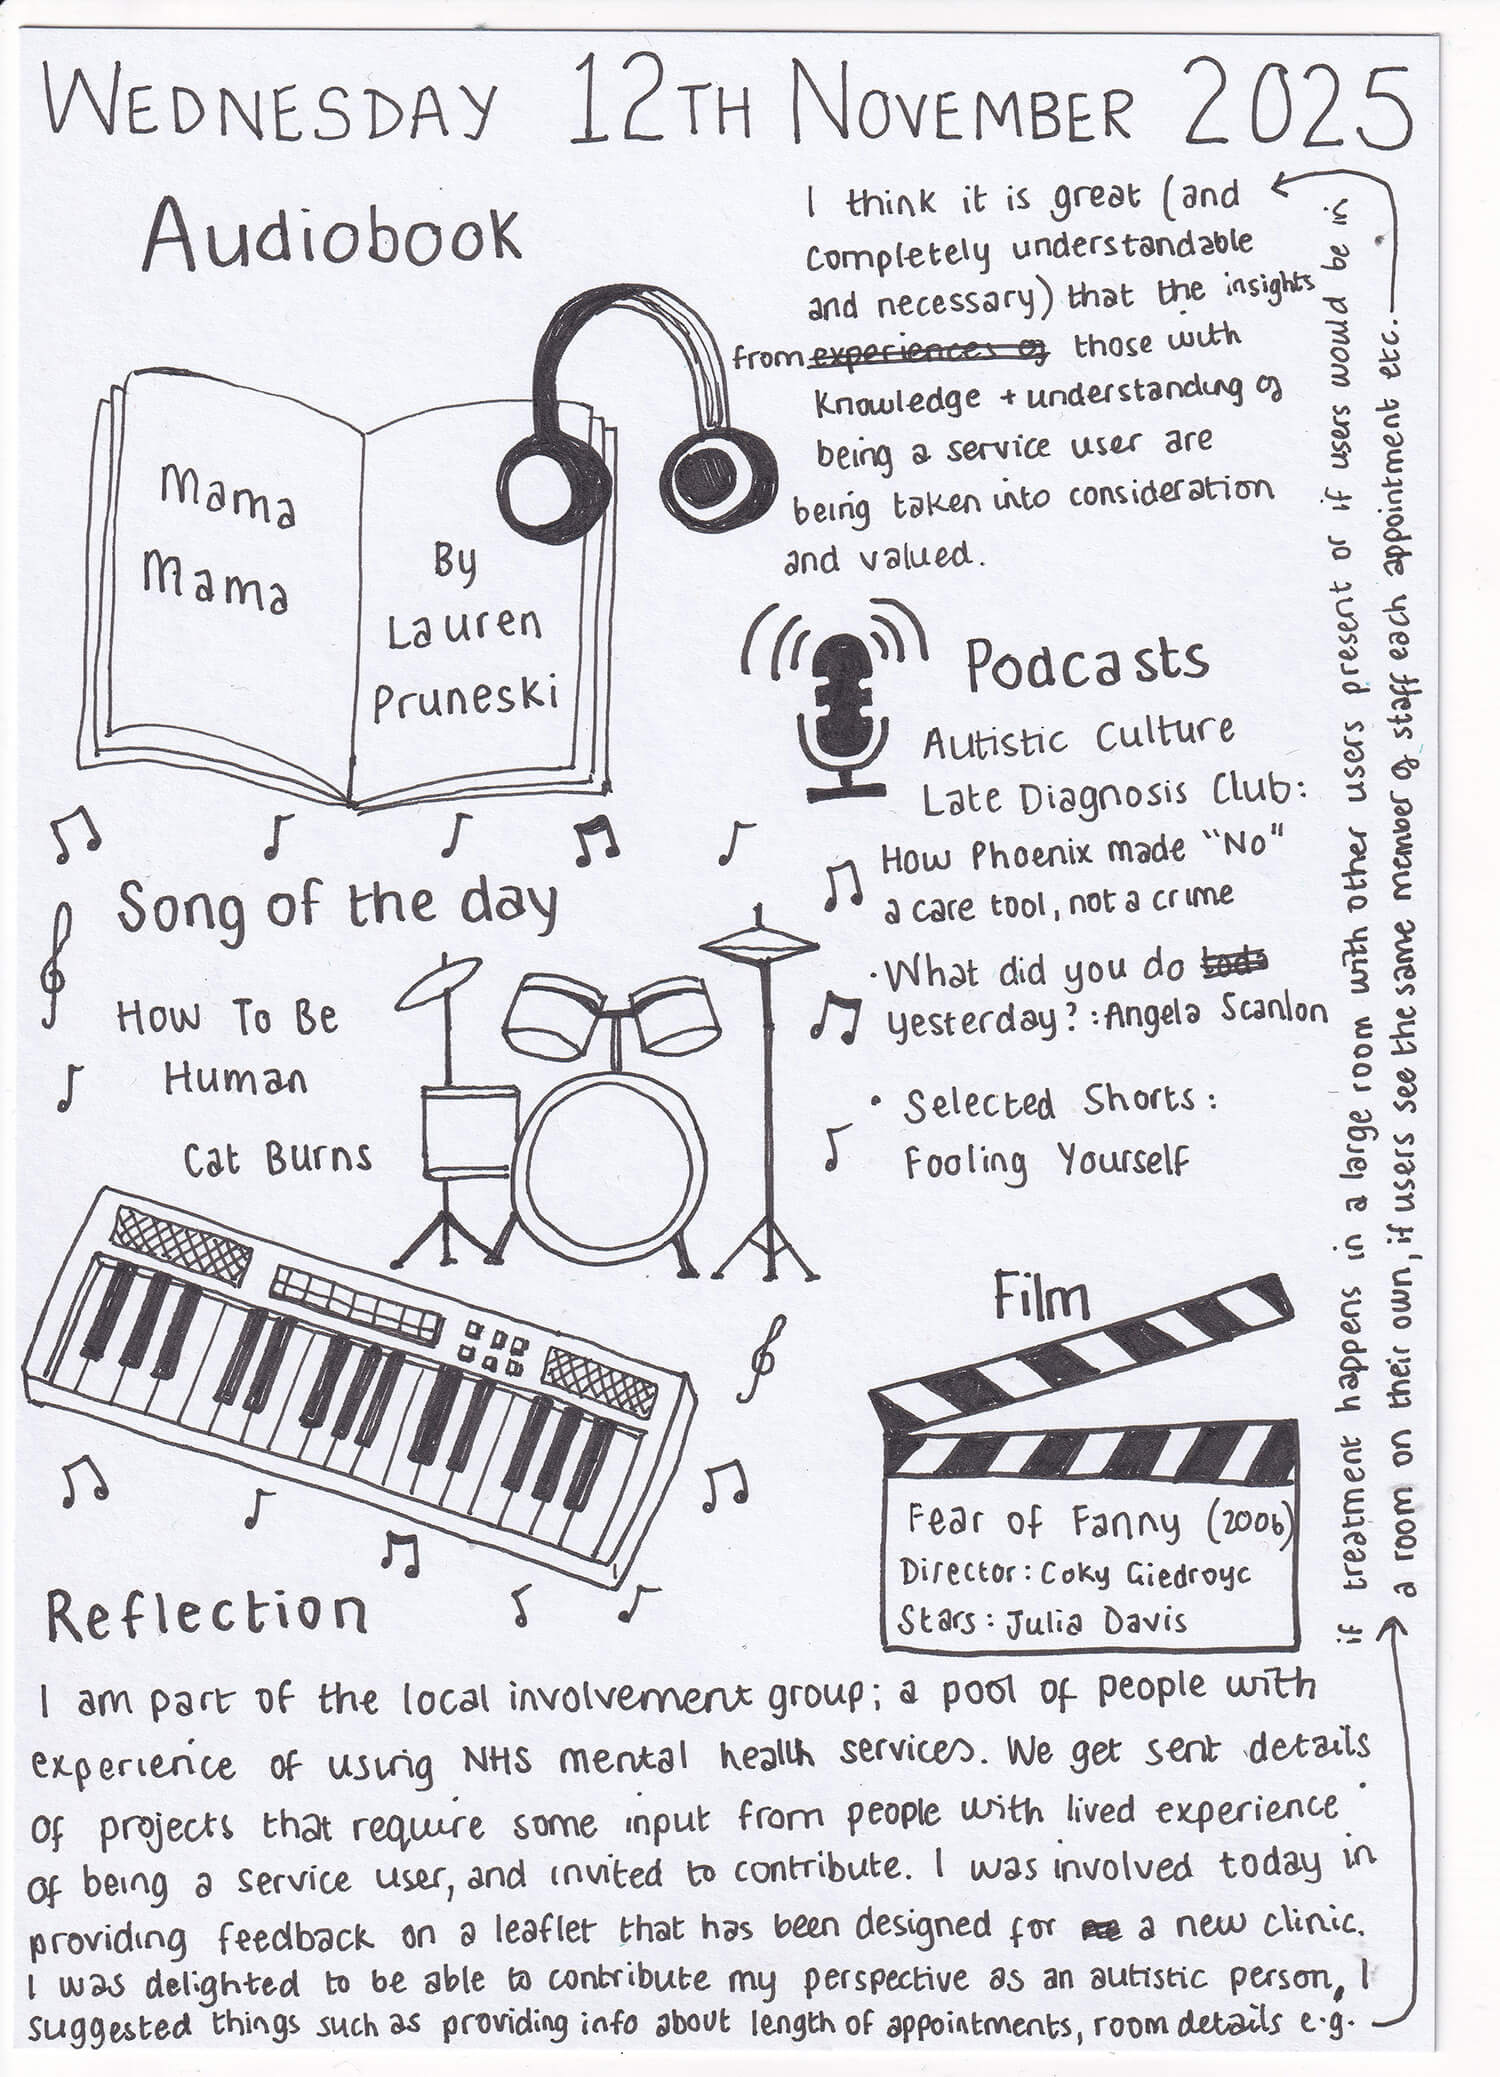 WEDNESDAY 12TH NOVEMBER 2025
Audiobook
Mama
Mama
By
Lauren
Pruneski
Podcasts
Autistic Culture
Late Diagnosis Club:
How Phoenix made "No"
a care tool, not a crime
· What did you do
yesterday? : Angela Scanlon
· Selected Shorts:
Fooling Yourself
Song of the day
How To Be
Human
Cat Burns
Film
Fear of Fanny (2006)
Director: Coky Giedroyc
Stars: Julia Davis
Reflection
I am part of the local involvement group; a pool of people with
experience of using NHS mental health services. We get sent details
of projects that require some input from people with lived experience
of being a service user, and invited to contribute. I was involved today in
providing feedback on a leaflet that has been designed for a new clinic.
I was delighted to be able to contribute my perspective as an autistic person, I
suggested things such as providing info about length of appointments, room details e.g.
if treatment happens in a large room with other users present or if users would be in
a room on their own, if users see the same member of staff each appointment etc.
I think it is great (and
completely understandable
and necessary) that the insights
from experiences of those with
knowledge + understanding of
being a service user are
being taken into consideration
and valued.